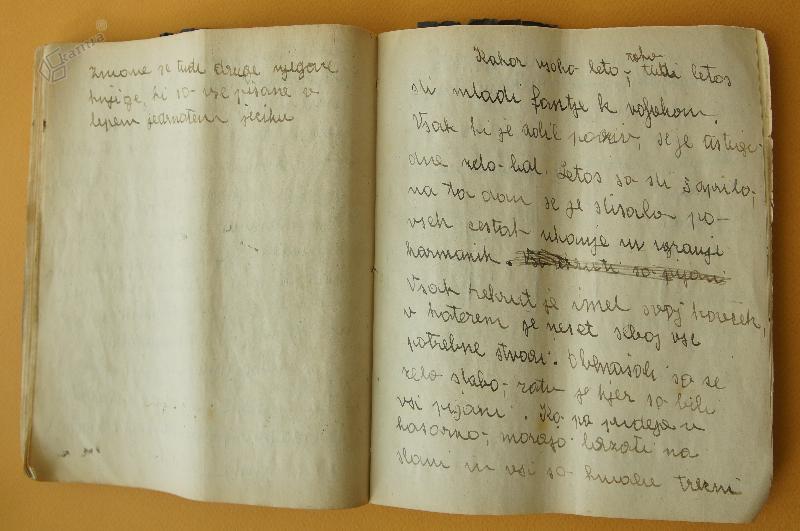 kamra
znane se tudi druge njegove
knjige, ki so vse pisane v
lepem jednatem jeziku
Kakor vsako leto, tako tudi letos
sli mladi fantje k vojakom.
Vsak ki je dobil poziv, se je tistega
dne zelo bal. Letos so sli 5 aprila,
na ta dan se je slisalo po-
vseh cestah ukanje in igranje
harmanik. so pijani
Vsak rekrut je imel svoj kovček,
v katerem je nesel seboj vse
potrebne stvari. Obnašali so se
zelo slabo, zato je kjer so bili
vsi pijani. Ko pa pridejo v
kasarno, morajo ležati na
slami in vsi so kmalu trezni